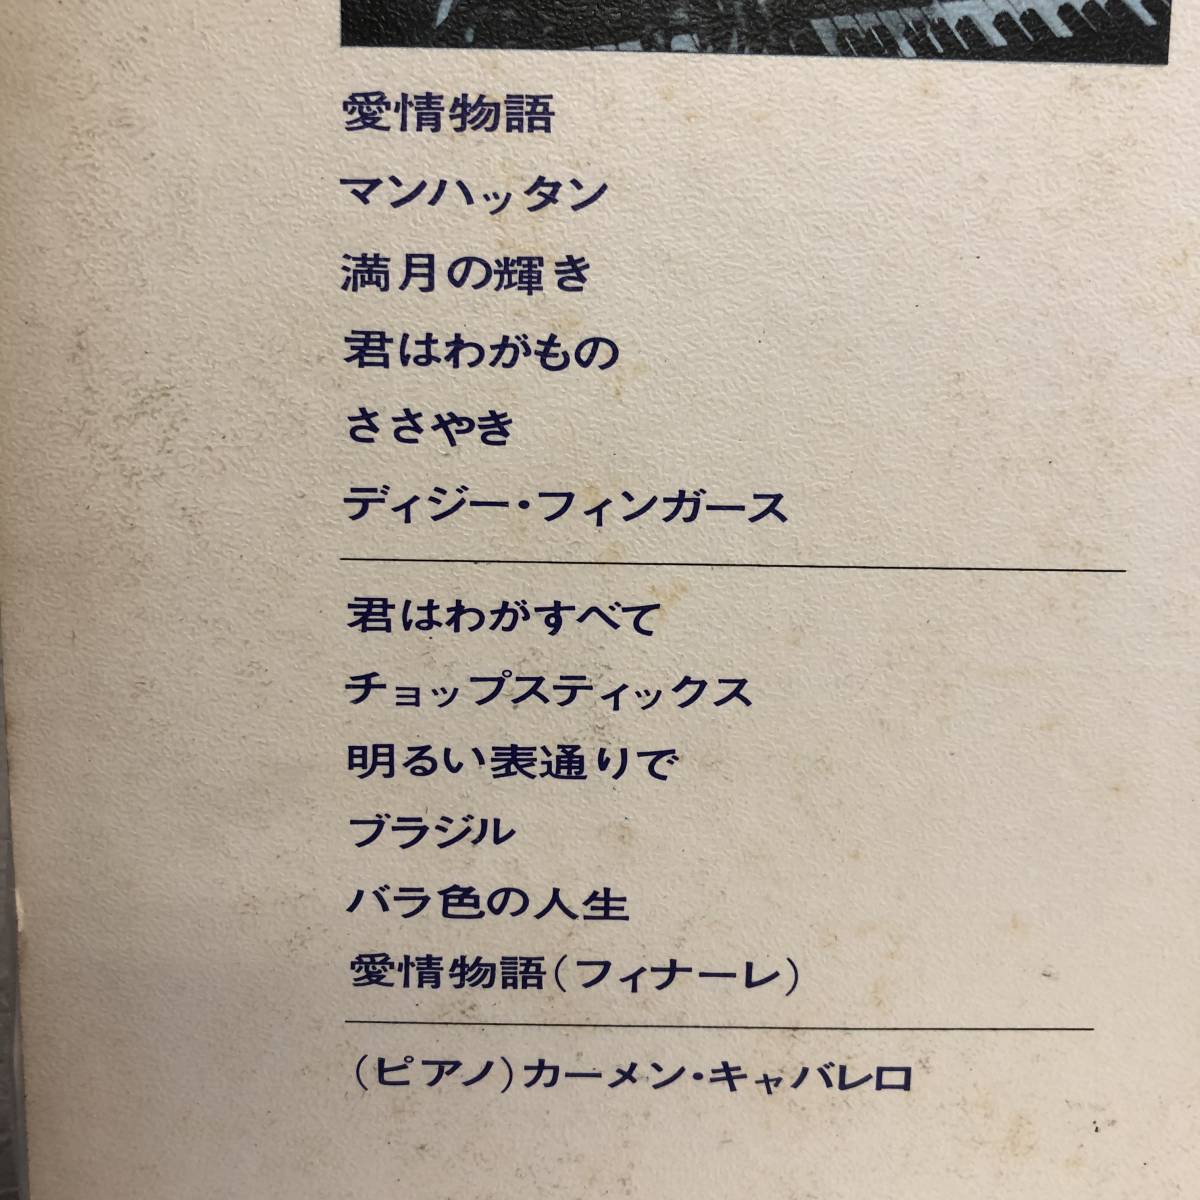 愛情物語
マンハッタン
満月の輝き
君はわがもの
ささやき
ディジー・フィンガース
君はわがすべて
チョップスティックス
明るい表通りで
ブラジル
バラ色の人生
愛情物語(フィナーレ)
(ピアノ)カーメン・キャバレロ